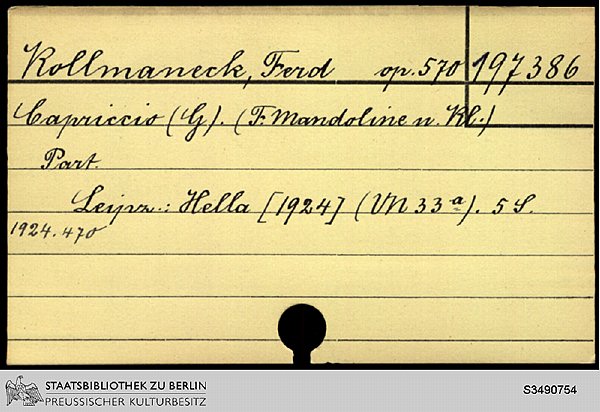 Kollmaneck, Ferd op. 570 197386
Capriccio (G). (F. Mandoline u. Kl.)
Part.
Leipz.: Hella [1924] (VN 33ª). 5 S.
1924.470
STAATSBIBLIOTHEK ZU BERLIN
PREUSSISCHER KULTURBESITZ
S3490754